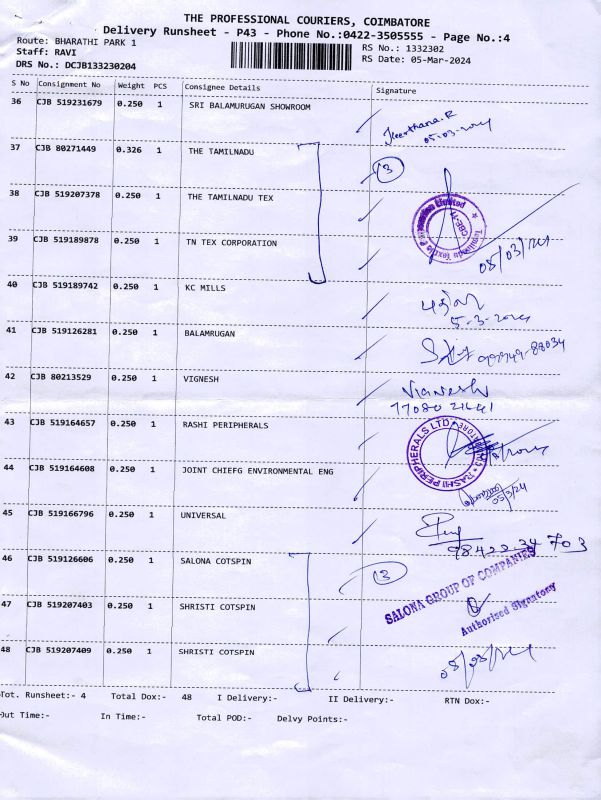 THE PROFESSIONAL COURIERS, COIMBATORE
Delivery Runsheet - P43 - Phone No.:0422-3505555 - Page No.:4
Route: BHARATHI PARK 1
RS No.: 1332302
Staff: RAVI
RS Date: 05-Mar-2024
DRS No.: DCJB133230204
S No Consignment No Weight PCS Consignee Details Signature
36 CJB 519231679 0.250 1 SRI BALAMURUGAN SHOWROOM
Keerthana.R
05-03-2024
37 CJB 80271449 0.326 1 THE TAMILNADU
3
38 CJB 519207378 0.250 1 THE TAMILNADU TEX
39 CJB 519189878 0.250 1 TN TEX CORPORATION
05/03/24
40 CJB 519189742 0.250 1 KC MILLS
5-3-2024
41 CJB 519126281 0.250 1 BALAMRUGAN
42 CJB 80213529 0.250 1 VIGNESH
Vignesh
77080 21441
43 CJB 519164657 0.250 1 RASHI PERIPHERALS
RASHI PERIPHERALS LTD
44 CJB 519164608 0.250 1 JOINT CHIEFG ENVIRONMENTAL ENG
05/3/24
45 CJB 519166796 0.250 1 UNIVERSAL
98422-34 703
46 CJB 519126606 0.250 1 SALONA COTSPIN
3
SALONA GROUP OF COMPANIES
47 CJB 519207403 0.250 1 SHRISTI COTSPIN
Authorised Signatory
48 CJB 519207409 0.250 1 SHRISTI COTSPIN
05/03/24
Tot. Runsheet:- 4 Total Dox:- 48 I Delivery:- II Delivery:- RTN Dox:-
Out Time:- In Time:- Total POD:- Delvy Points:-